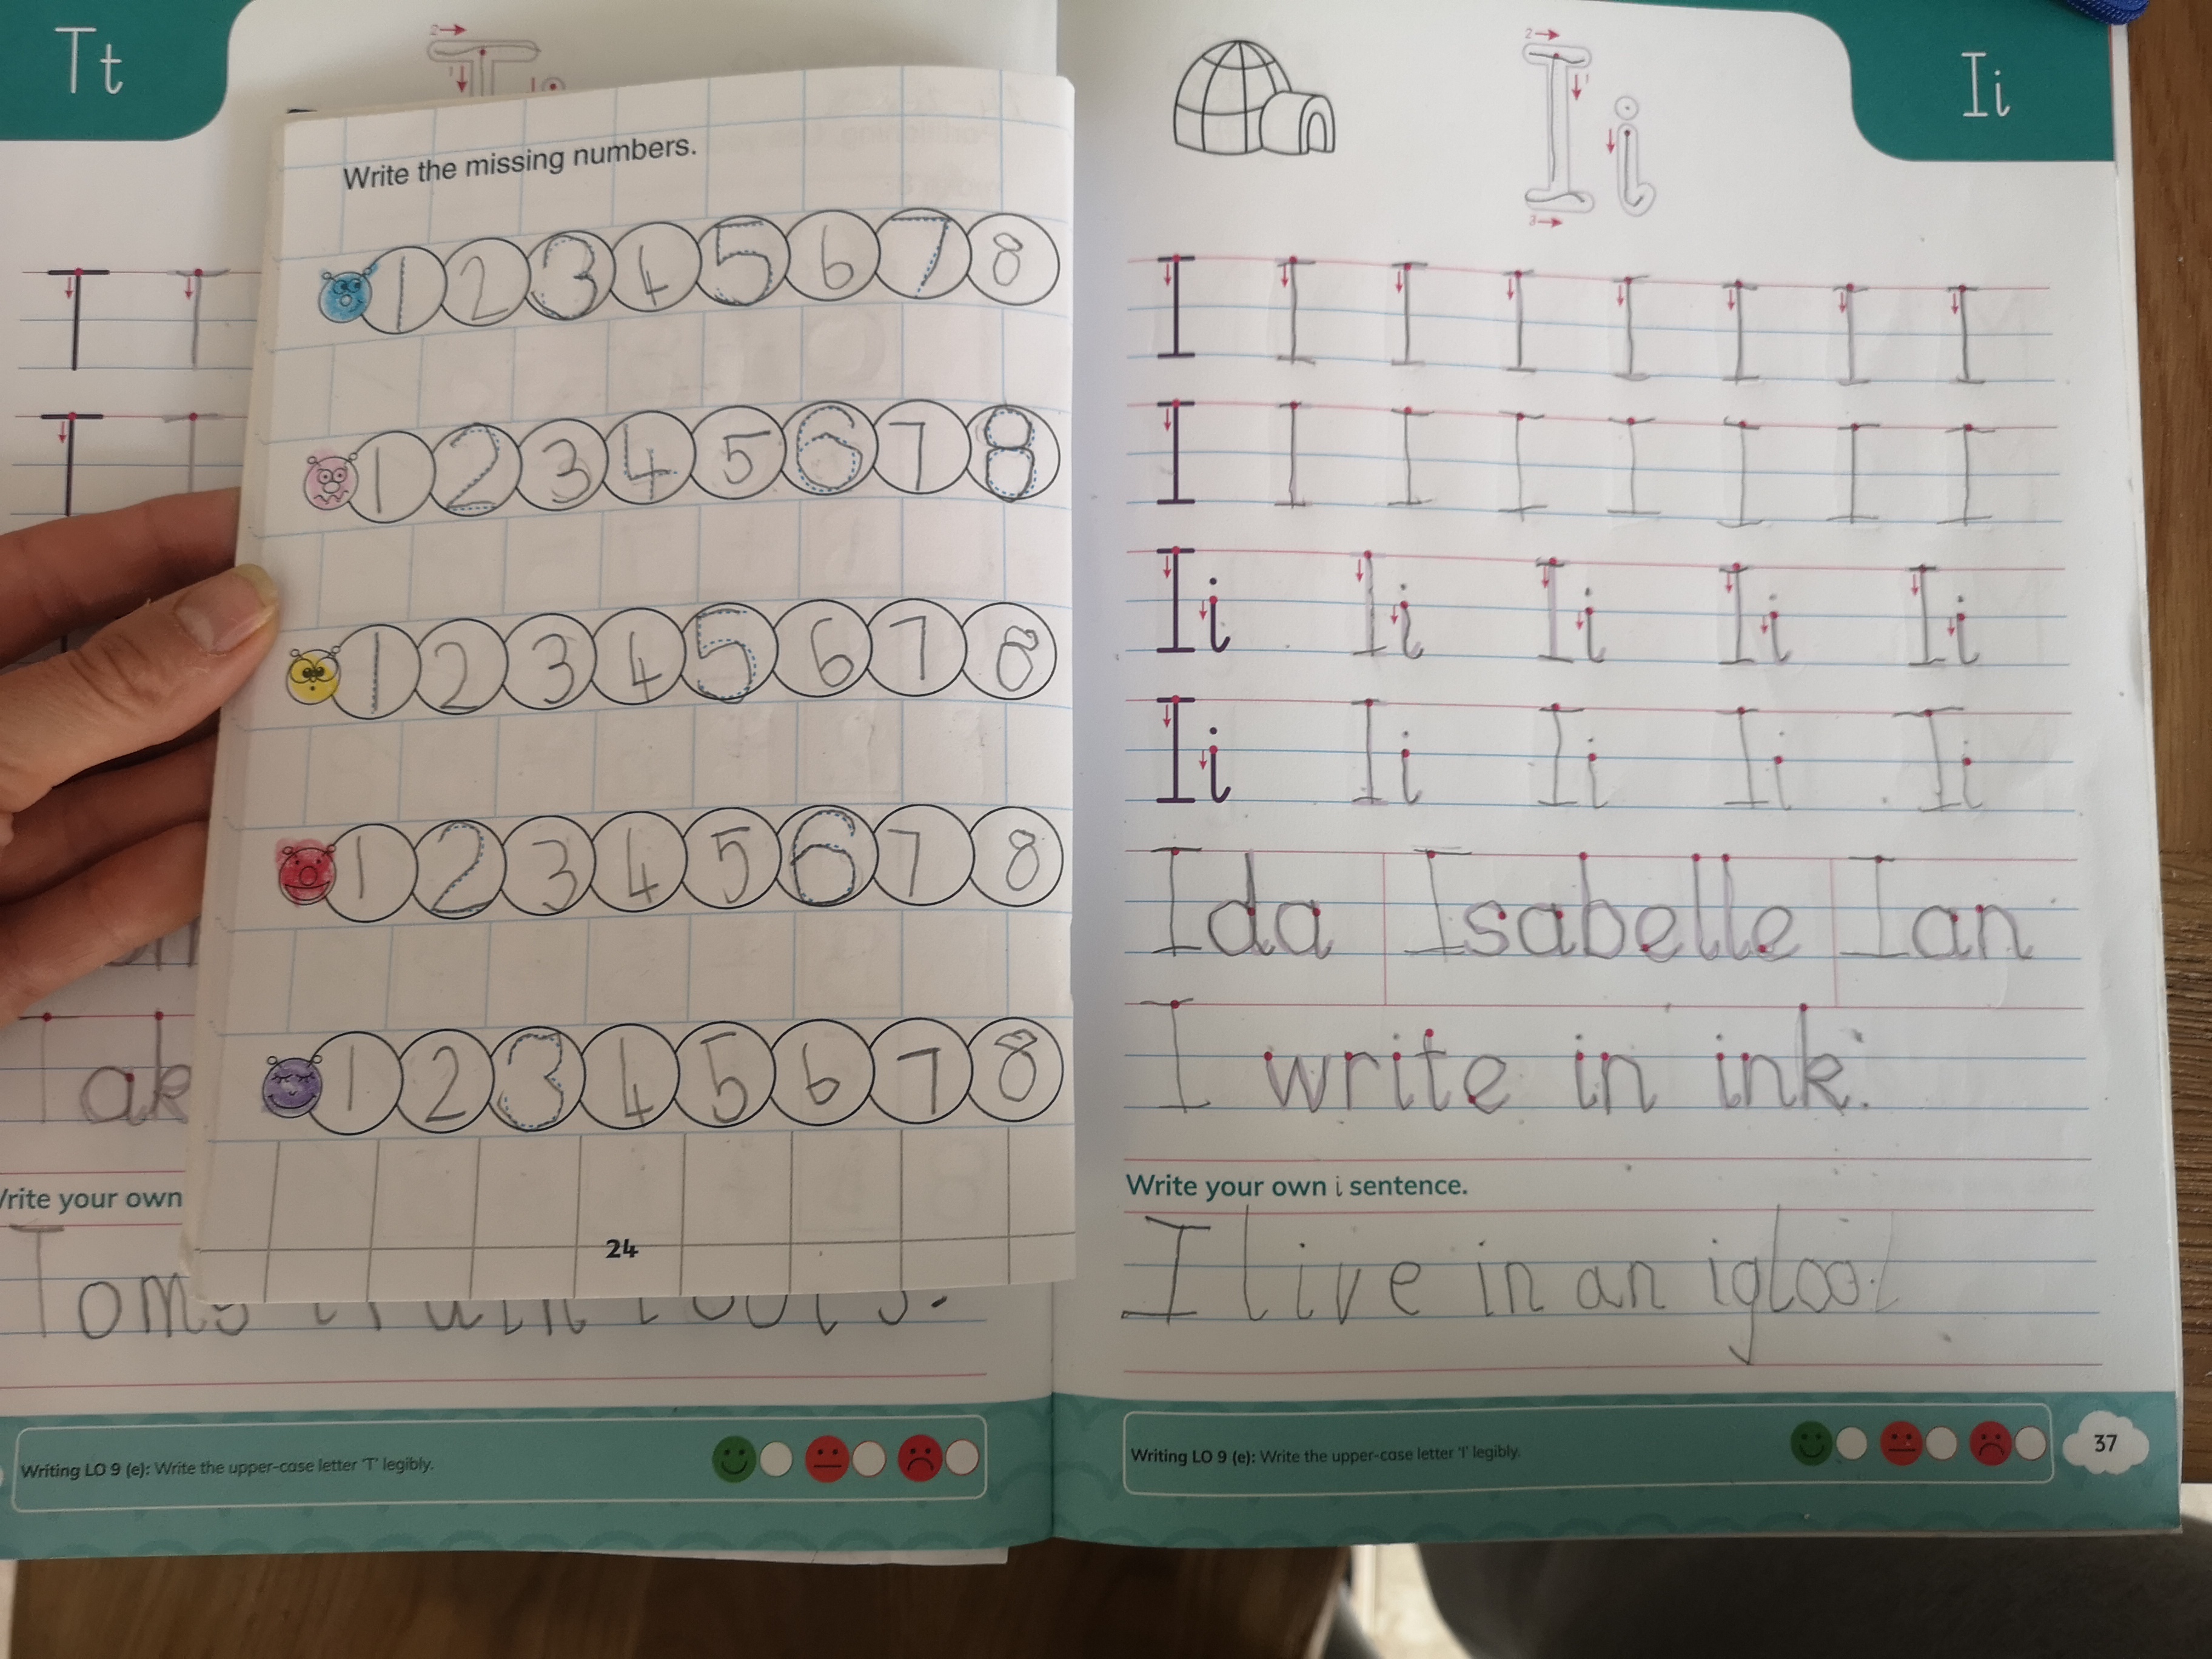 Tt
2→
Write the missing numbers.
1 2 3 4 5 6 7 8
1 2 3 4 5 6 7 8
1 2 3 4 5 6 7 8
1 2 3 4 5 6 7 8
1 2 3 4 5 6 7 8
24
T T
T T
Tak
Write your own
Toms
Writing LO 9 (e): Write the upper-case letter 'T' legibly.
Ii
2→
I i
3→
I I I I I I I I
I I I I I I I I
Ii Ii Ii Ii Ii
Ii Ii Ii Ii Ii
Ida Isabelle Ian
I write in ink.
Write your own i sentence.
I live in an igloo.
Writing LO 9 (e): Write the upper-case letter 'I' legibly.
37